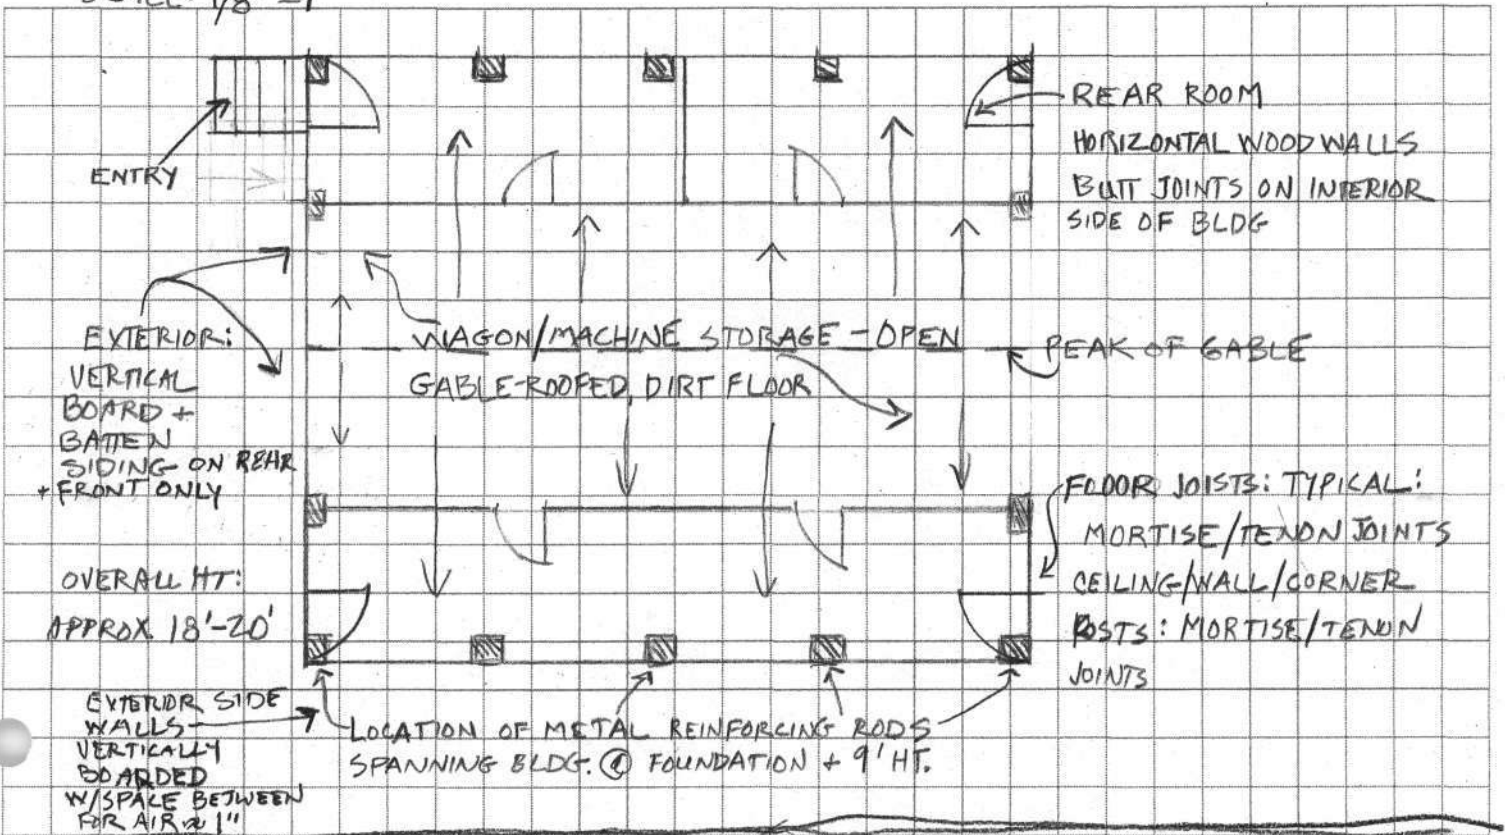 1/8" = 1'
ENTRY
REAR ROOM
HORIZONTAL WOOD WALLS
BUTT JOINTS ON INTERIOR
SIDE OF BLDG
EXTERIOR:
VERTICAL
BOARD +
BATTEN
SIDING ON REAR
+ FRONT ONLY
WAGON/MACHINE STORAGE - OPEN
GABLE-ROOFED, DIRT FLOOR
PEAK OF GABLE
FLOOR JOISTS: TYPICAL:
MORTISE/TENON JOINTS
CEILING/WALL/CORNER
POSTS: MORTISE/TENON
JOINTS
OVERALL HT:
APPROX 18'-20'
EXTERIOR SIDE
WALLS
VERTICALLY
BOARDED
W/SPACE BETWEEN
FOR AIR ≈ 1"
LOCATION OF METAL REINFORCING RODS
SPANNING BLDG. @ FOUNDATION + 9' HT.